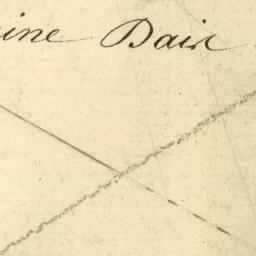 ine Dair